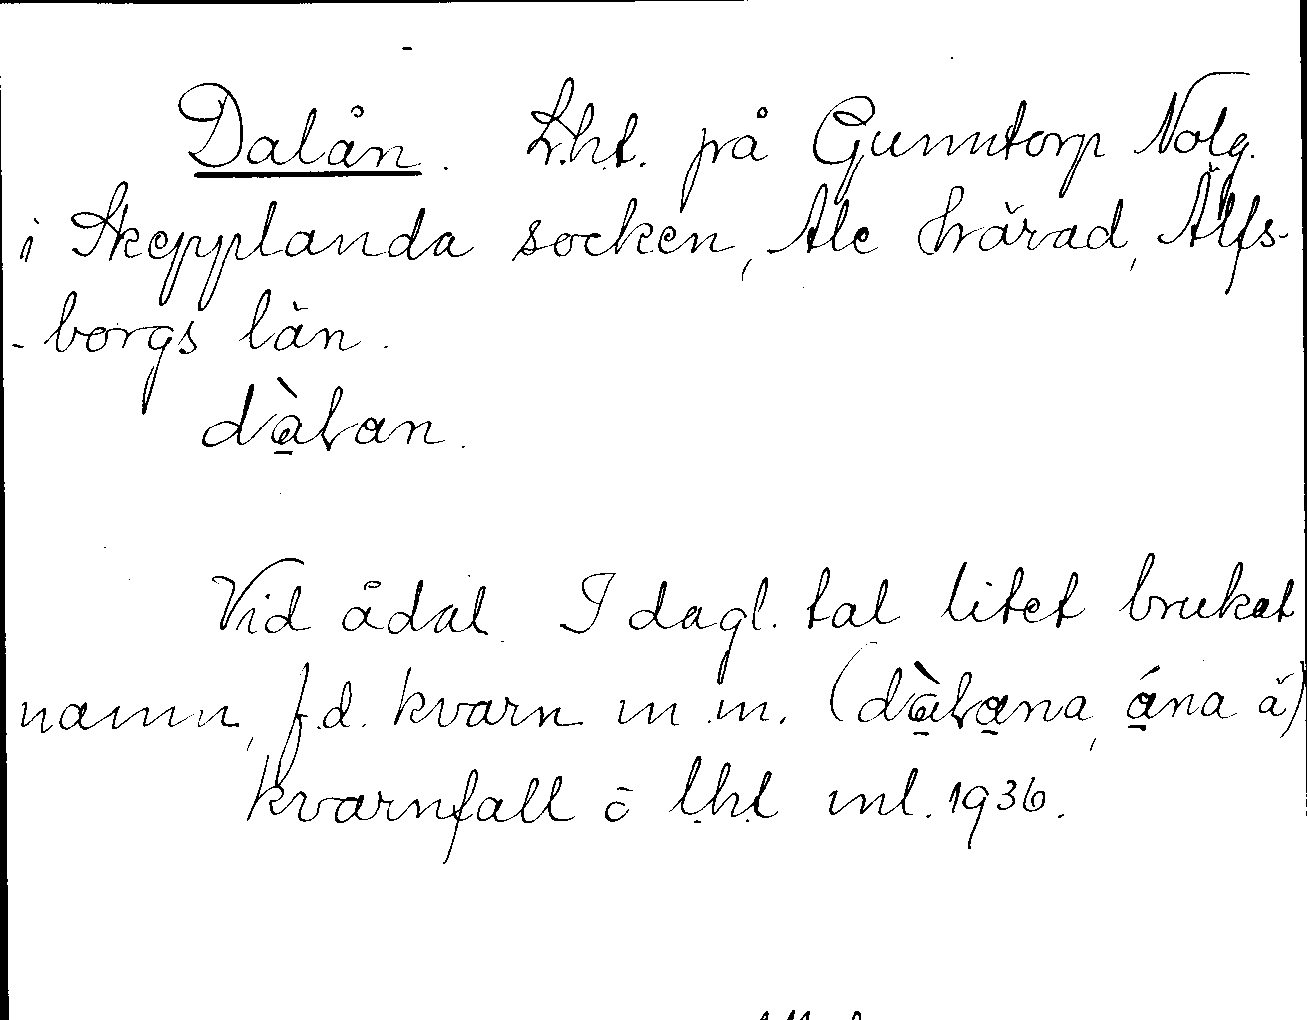 Dalån. L.h.t. på Gunntorp Nolg.
i Skepplanda socken, Ale härad, Älfs-
-borgs län.
dàlan.
Vid ådal. I dagl. tal litet brukat
namn, f.d. kvarn m.m. (dàlana, ána ä)
kvarnfall o l.h.t inl. 1936.